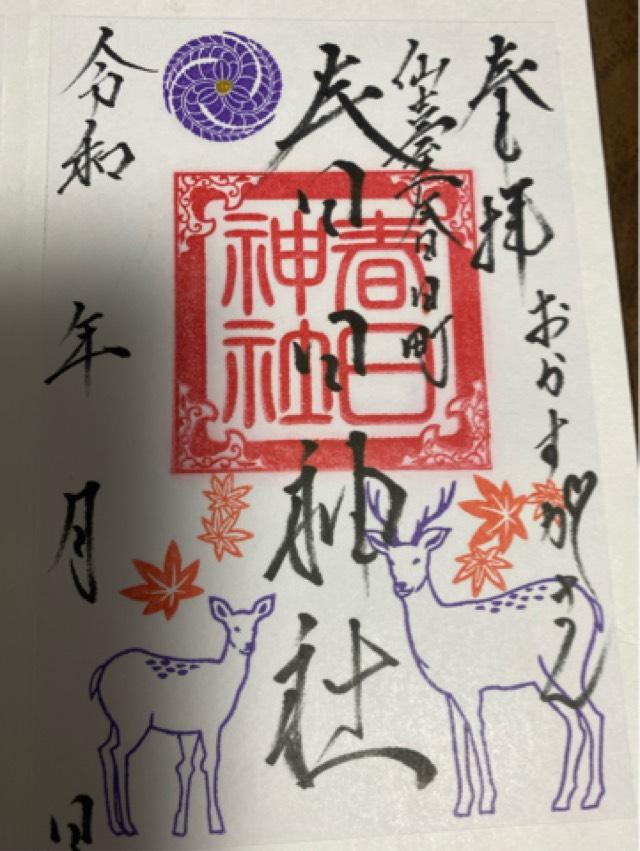 奉拝
おかすがさん
仙臺春日町
春日神社
春日
神社
令和 年 月 日